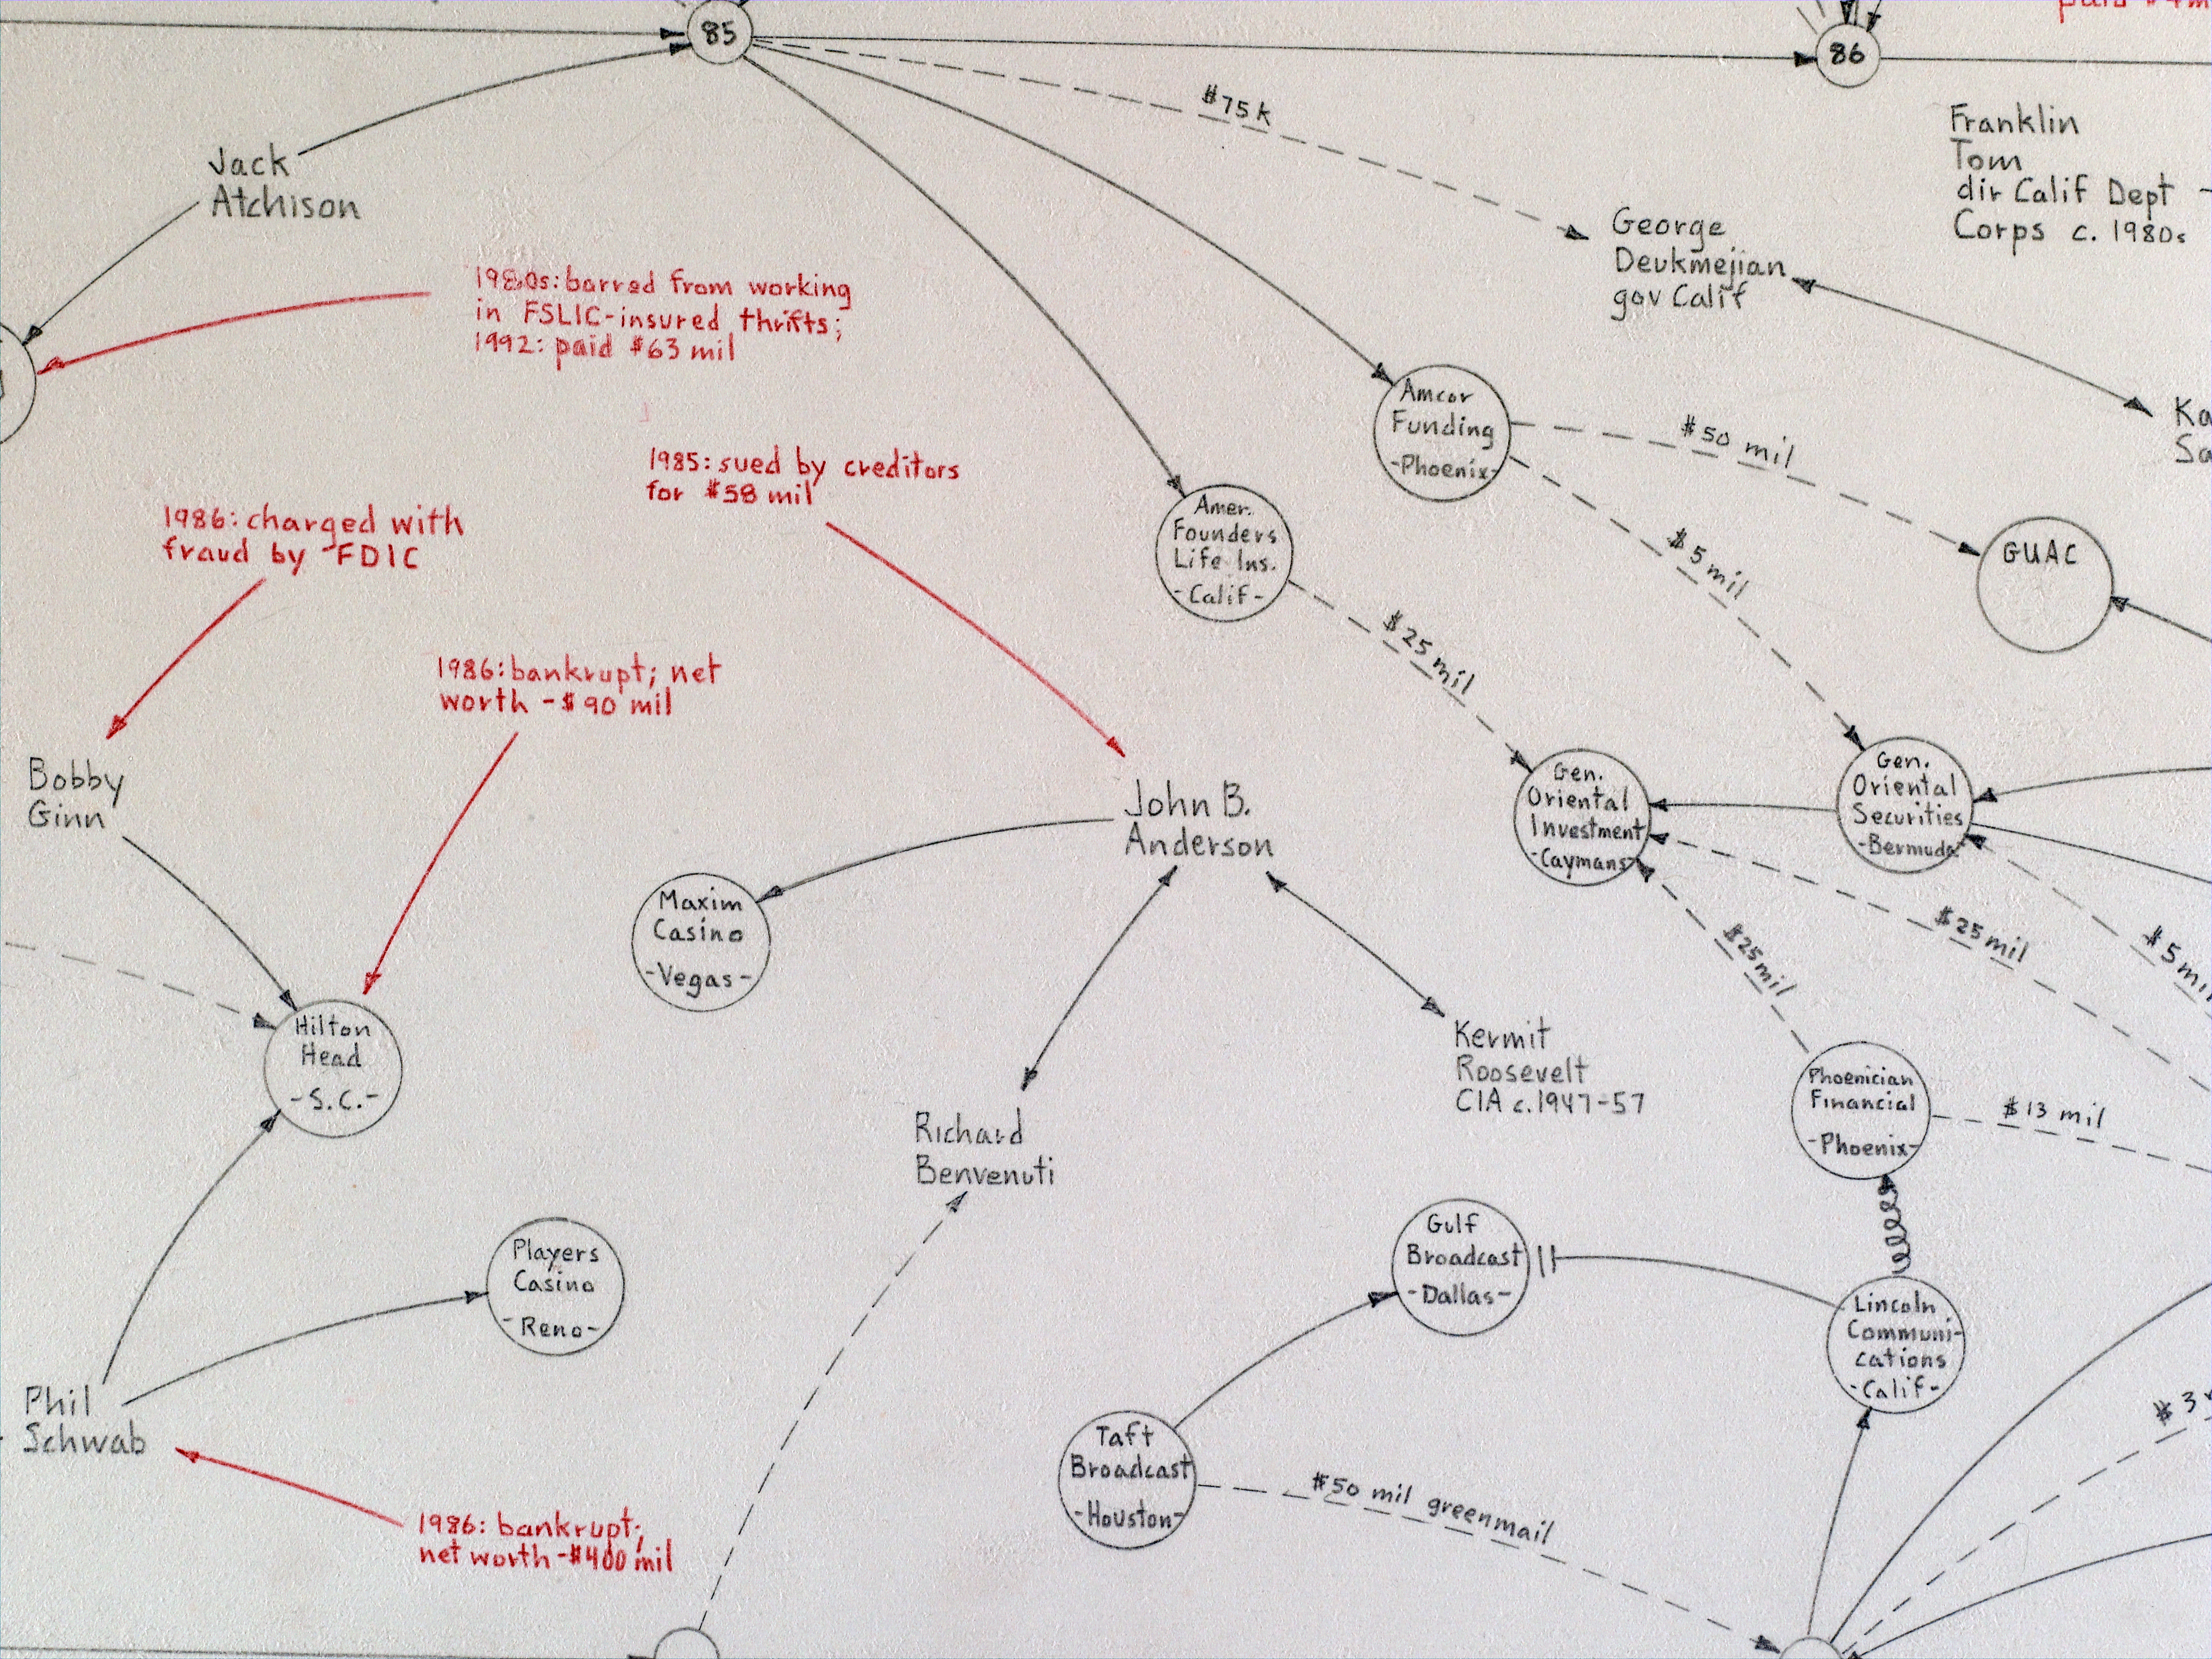 85
86
$75k
Franklin
Tom
dir Calif Dept
Corps c. 1980s
Jack
Atchison
George
Deukmejian
gov Calif
1980s: barred from working
in FSLIC-insured thrifts;
1992: paid $63 mil
Amcor
Funding
-Phoenix-
$50 mil
1985: sued by creditors
for $58 mil
$5 mil
GUAC
Amer.
Founders
Life Ins.
-Calif-
1986: charged with
fraud by FDIC
$25 mil
1986: bankrupt; net
worth -$90 mil
Bobby
Ginn
John B.
Anderson
Gen.
Oriental
Investment
-Caymans-
Gen.
Oriental
Securities
-Bermuda-
Maxim
Casino
-Vegas-
$25 mil
$25 mil
$5 mil
Hilton
Head
-S.C.-
Kermit
Roosevelt
CIA c.1947-57
Phoenician
Financial
-Phoenix-
$13 mil
Richard
Benvenuti
Players
Casino
-Reno-
Gulf
Broadcast
-Dallas-
Lincoln
Communi-
cations
-Calif-
Phil
Schwab
Taft
Broadcast
-Houston-
$50 mil greenmail
1986: bankrupt;
net worth -$400 mil